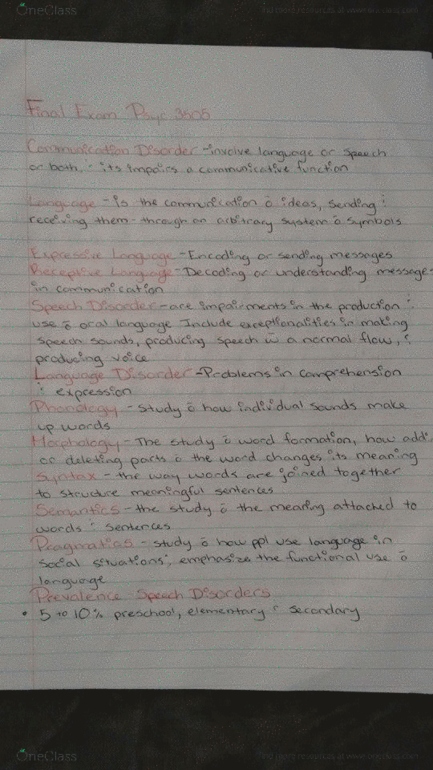 OneClass
find more resources at www.oneclass.com
Final Exam Psyc 3505
Communication Disorder - involve language or speech
or both, its impairs a communicative function
Language - is the communication o ideas, sending :
receiving them through an arbitrary system o symbols
Expressive Language - Encoding or sending messages
Receptive Language - Decoding or understanding message-
in communication
Speech Disorder - are impairments in the production :
use o oral language Include exceptionalities in making
speech sounds, producing speech w a normal flow, :
producing voice
Language Disorder - Problems in comprehension
: expression
Phonology - Study o how individual sounds make
up words
Morphology - The study o word formation, how add
or deleting parts o the word changes its meaning
Syntax - the way words are joined together
to structure meaningful sentences
Semantics - the study o the meaning attached to
words : sentences
Pragmatics - study o how ppl use language in
social situations, emphasize the functional use o
language
Prevalence Speech Disorders
• 5 to 10% preschool, elementary : secondary
OneClass
find more resources at www.oneclass.com